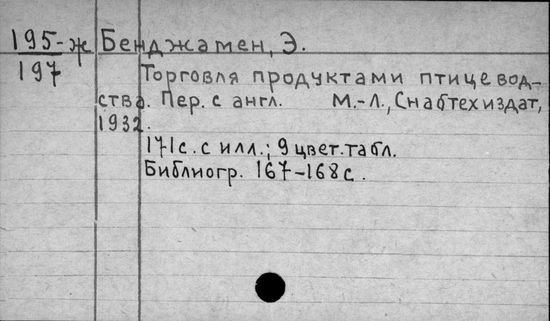 195-ж Бенджамен, Э.
197
Торговля продуктами птицевод-
ства. Пер. с англ. М.-Л., Снабтехиздат,
1932.
171с. с илл.; 9 цвет. табл.
Библиогр. 167-168 с.